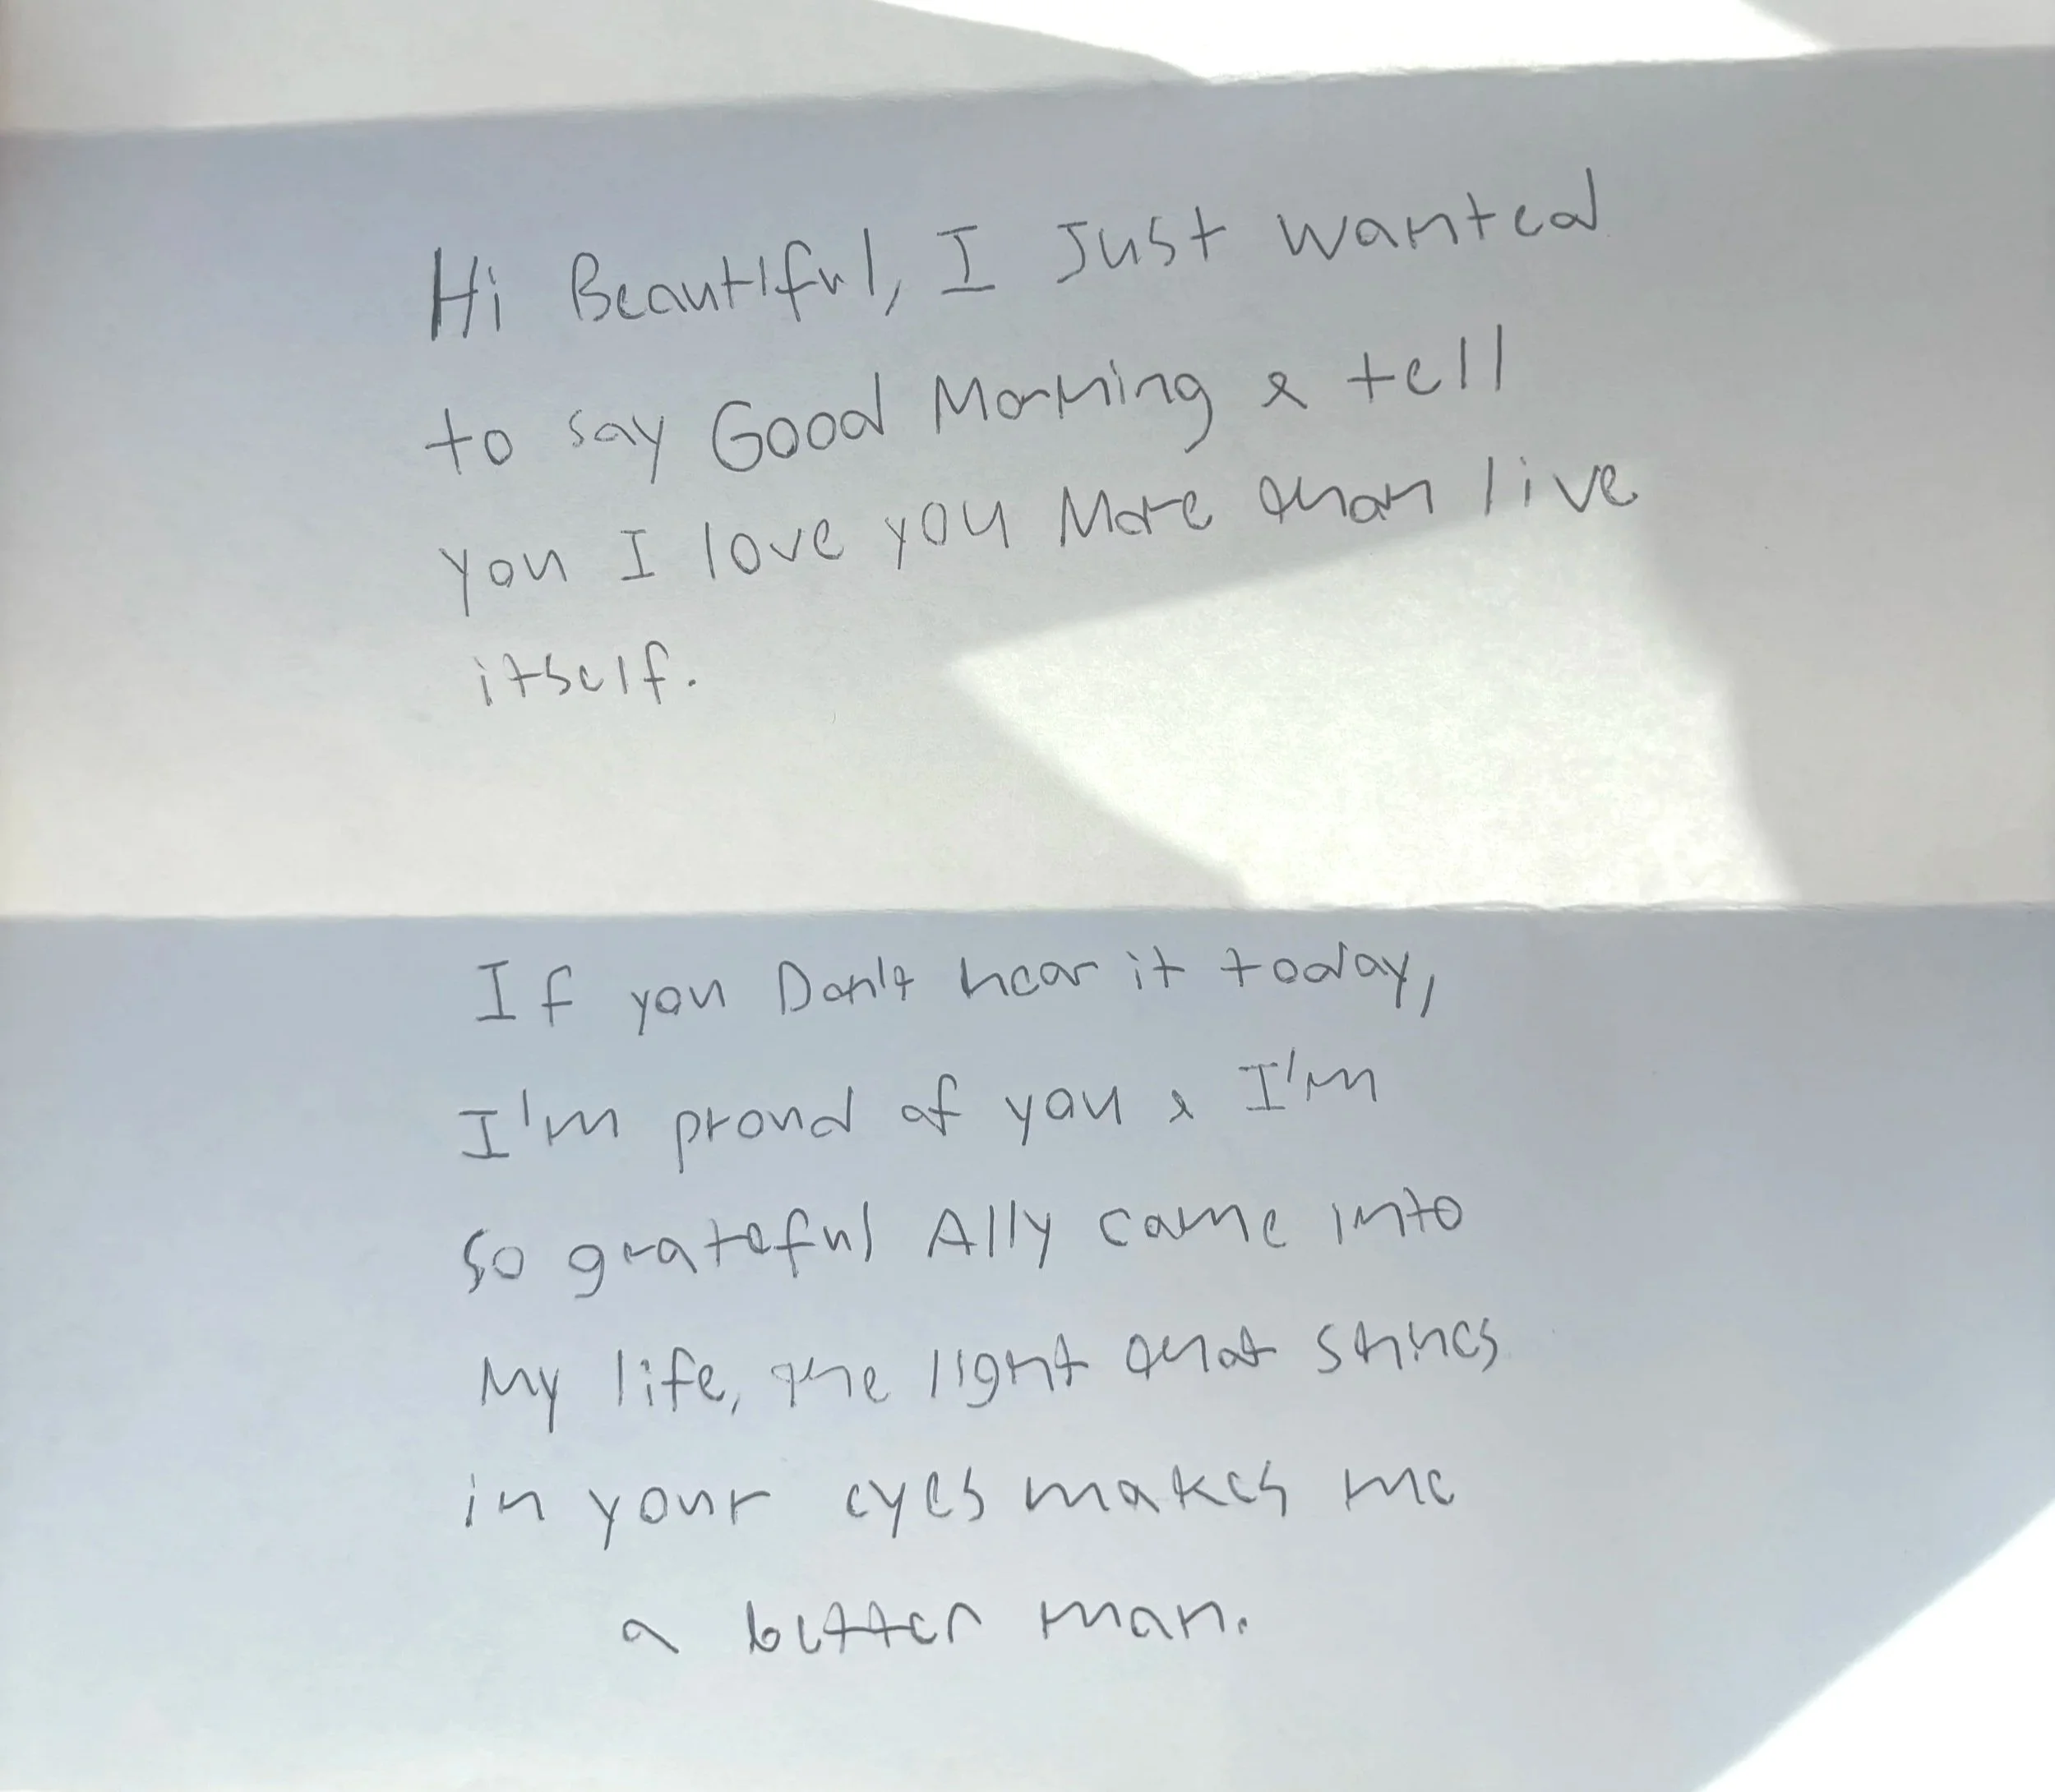 Hi Beautiful, I Just wanted
to say Good Morning & tell
you I love you More than live
itself.
If you Don't hear it today,
I'm proud of you & I'm
so grateful Ally came into
My life, the light that shines
in your eyes makes me
a better man.